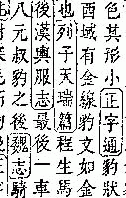 色其形小正字通豹狀
西域有金線豹文如金
也列子天瑞篇程生馬
後漢輿服志最後一車
八元叔豹之後魏志騎